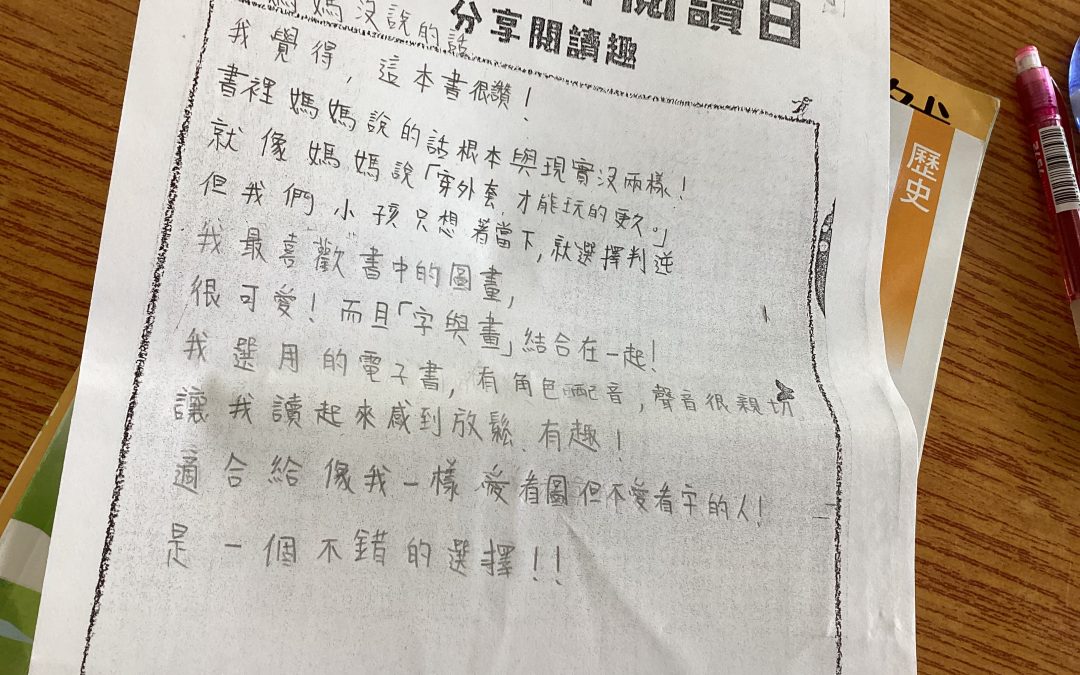 閱讀日
分享閱讀趣
媽媽沒說的話
我覺得，這本書很讚！
書裡媽媽說的話根本與現實沒兩樣！
就像媽媽說「穿外套，才能玩的更久。」
但我們小孩只想著當下，就選擇判逆
我最喜歡書中的圖畫，
很可愛！而且「字與畫」結合在一起！
我選用的電子書，有角色配音，聲音很親切
讓我讀起來感到放鬆、有趣！
適合給像我一樣愛看圖但不愛看字的人！
是一個不錯的選擇！！
歷史